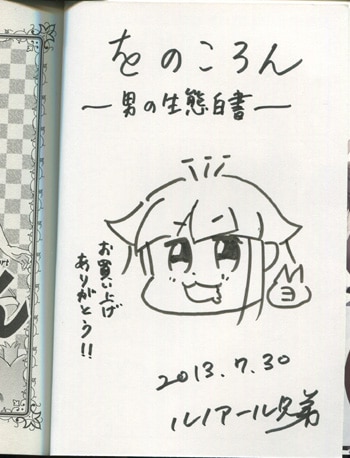 をのころん
―男の生態白書―
お買い上げ
ありがとう!!
ヨ
2013.7.30
ルノアール兄弟